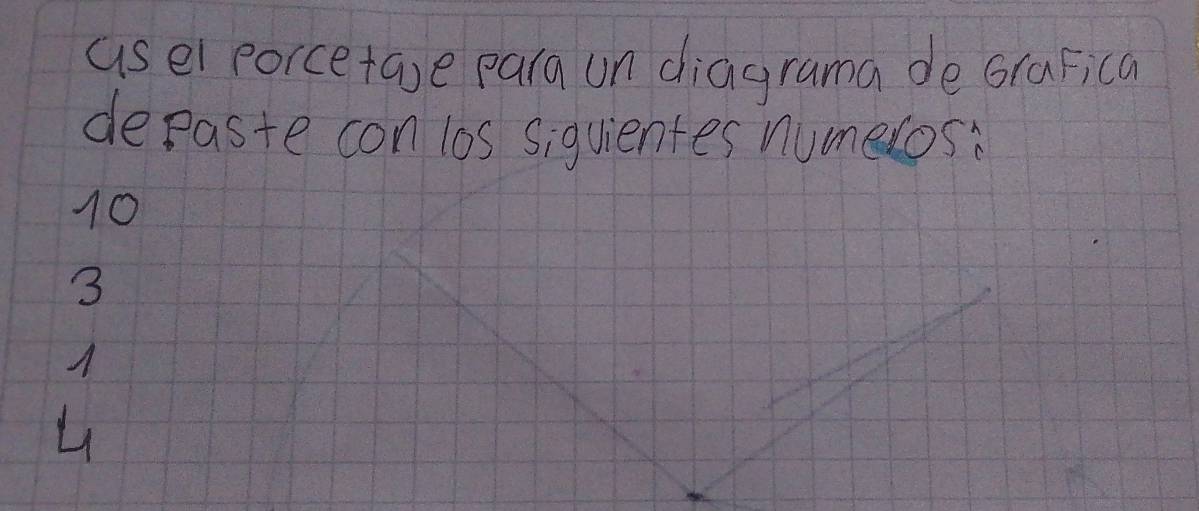 as el porcetaje para un diagrama de Grafica
de paste con los siguientes numeros:
10
3
1
4